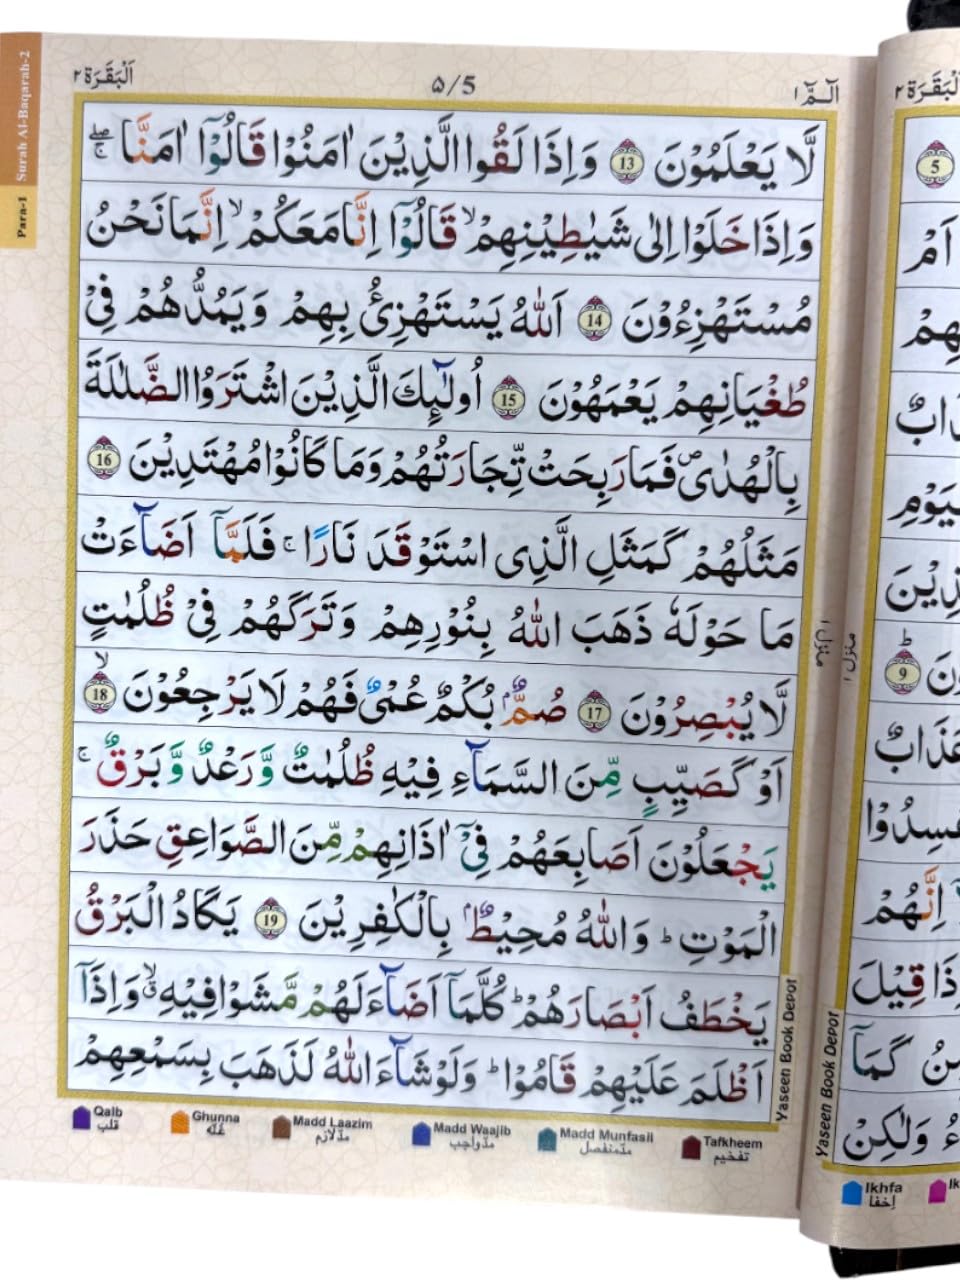 اَلْبَقَرَة ٢
۵/5
الٓمّٓ ١
Surah Al-Baqarah-2
Para-1
لَّا يَعْلَمُوْنَ 13 وَاِذَا لَقُوا الَّذِيْنَ اٰمَنُوْا قَالُوْٓا اٰمَنَّا ۚۖ
وَاِذَا خَلَوْا اِلٰى شَيٰطِيْنِهِمْ ۙ قَالُوْٓا اِنَّا مَعَكُمْ ۙ اِنَّمَا نَحْنُ
مُسْتَهْزِءُوْنَ 14 اَللّٰهُ يَسْتَهْزِئُ بِهِمْ وَيَمُدُّهُمْ فِىْ
طُغْيَانِهِمْ يَعْمَهُوْنَ 15 اُولٰٓئِكَ الَّذِيْنَ اشْتَرَوُا الضَّلٰلَةَ
بِالْهُدٰى ۪ فَمَا رَبِحَتْ تِّجَارَتُهُمْ وَمَا كَانُوْا مُهْتَدِيْنَ 16
مَثَلُهُمْ كَمَثَلِ الَّذِى اسْتَوْقَدَ نَارًا ۚ فَلَمَّآ اَضَآءَتْ
مَا حَوْلَهٗ ذَهَبَ اللّٰهُ بِنُوْرِهِمْ وَتَرَكَهُمْ فِىْ ظُلُمٰتٍ
لَّا يُبْصِرُوْنَ 17 صُمٌّۢ بُكْمٌ عُمْىٌ فَهُمْ لَا يَرْجِعُوْنَ ۙ 18
اَوْ كَصَيِّبٍ مِّنَ السَّمَآءِ فِيْهِ ظُلُمٰتٌ وَّرَعْدٌ وَّبَرْقٌ ۚ
يَجْعَلُوْنَ اَصَابِعَهُمْ فِىْٓ اٰذَانِهِمْ مِّنَ الصَّوَاعِقِ حَذَرَ
الْمَوْتِ ؕ وَاللّٰهُ مُحِيْطٌۢ بِالْكٰفِرِيْنَ 19 يَكَادُ الْبَرْقُ
يَخْطَفُ اَبْصَارَهُمْ ؕ كُلَّمَآ اَضَآءَ لَهُمْ مَّشَوْا فِيْهِ ۙ وَاِذَآ
اَظْلَمَ عَلَيْهِمْ قَامُوْا ؕ وَلَوْ شَآءَ اللّٰهُ لَذَهَبَ بِسَمْعِهِمْ
منزل ١
Yaseen Book Depot
Qalb قلب
Ghunna غنّه
Madd Laazim مدّ لازم
Madd Waajib مدّ واجب
Madd Munfasil مدّ منفصل
Tafkheem تفخيم
اَلْبَقَرَة ٢
5
اَمْ
9
قِيْلَ
كَمَآ
وَلٰكِنْ
منزل ١
Yaseen Book Depot
Ikhfa إخفا